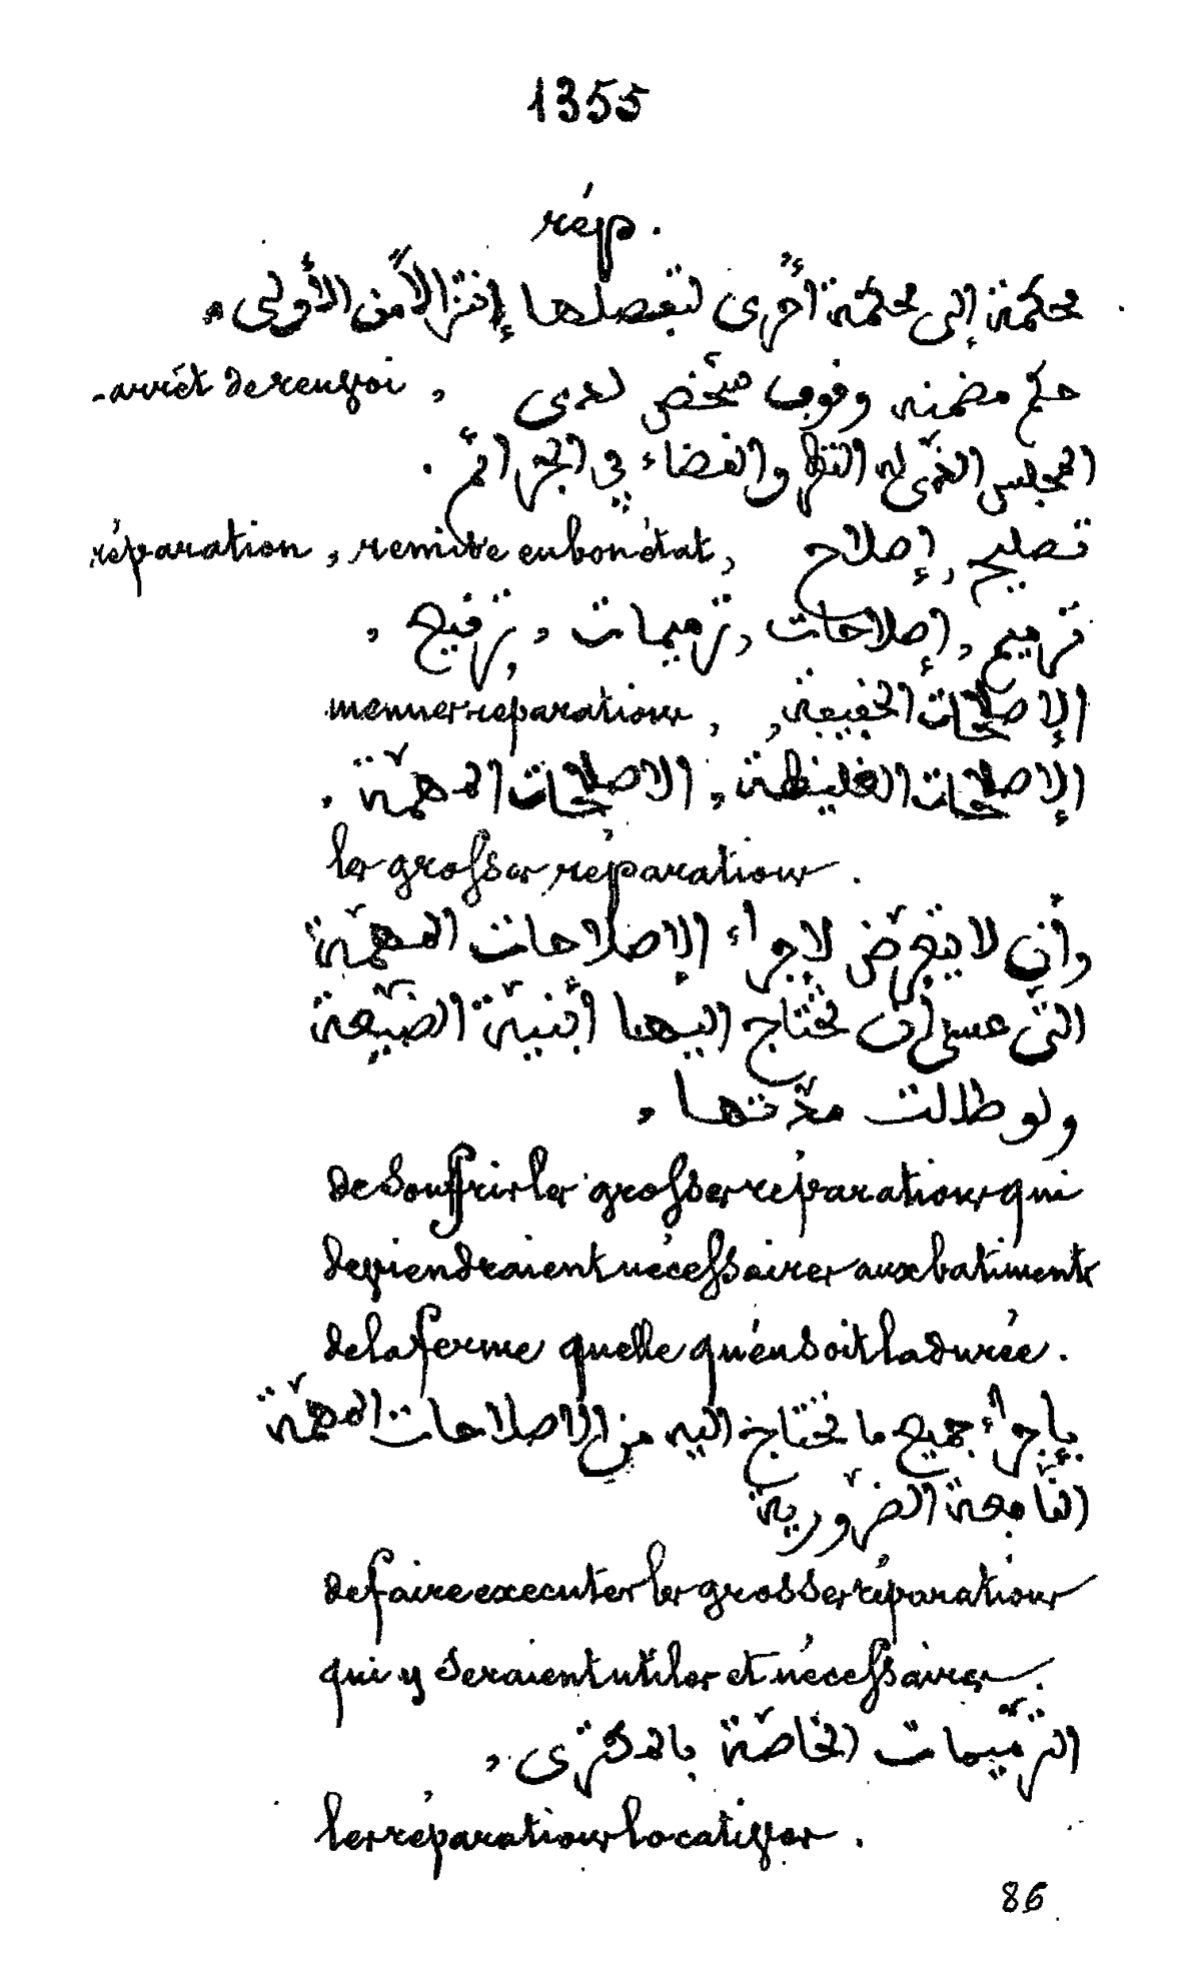 1355
rép.
محكمة إلى محكمة أخرى لتفصلها إنتزالاً من الأولى،
- arrêt de renvoi , حكم مضمنه وقوف شخص لدى
المجلس الذي له النظر والقضاء في الجرائم .
réparation, remise en bon état, تصليح, إصلاح
ترميم, إصلاحات, ترميمات, ترفيح,
menues réparations , الإصلاحات الخفيفة,
الإصلاحات الغليظة, الإصلاحات المهمّة.
les grosses réparations .
وأن لا يتعرّض لإجراء الإصلاحات المهمّة
التي عسى أن تحتاج إليها أبنية الضيعة
ولو طالت مدّتها,
de souffrir les grosses réparations qui
deviendraient nécessaires aux batiments
de la ferme quelle qu'en soit la durée .
بإجراء جميع ما تحتاج إليه من الإصلاحات المهمّة
النافعة الضرورية
de faire executer les grosses réparations
qui y seraient utiles et nécessaires.
الترميمات الخاصّة بالمكترى,
les réparations locatives .
86